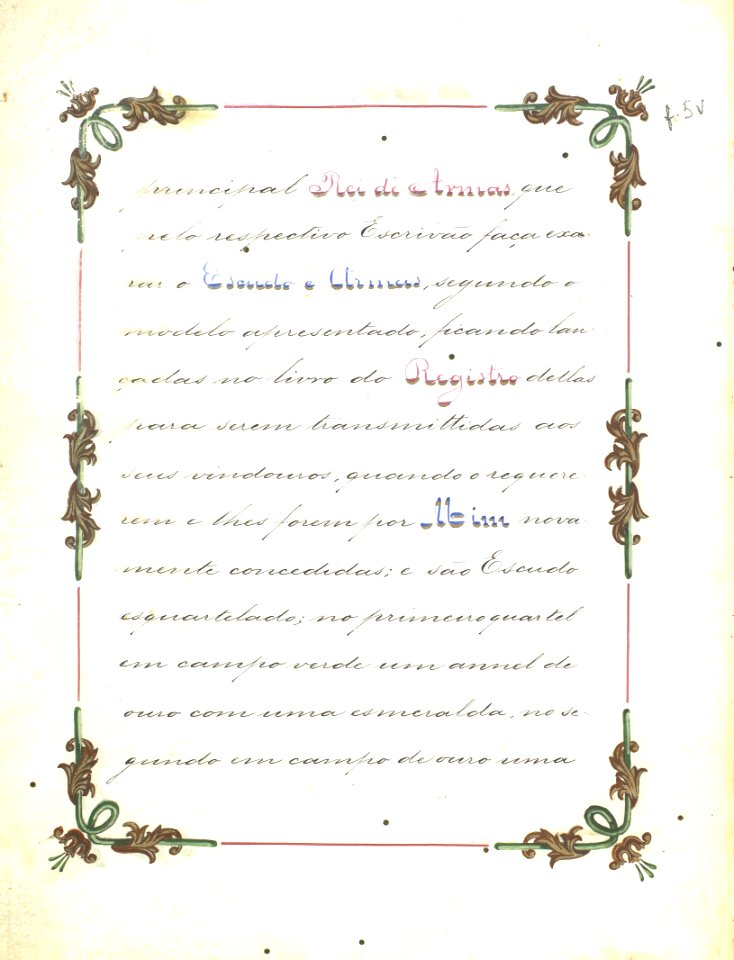 f. 5v
principal Rei de Armas, que
pelo respectivo Escrivão faça exa-
rar o Escudo e Armas, segundo o
modelo apresentado, ficando lan-
çadas no livro do Registro dellas
para serem transmittidas aos
seus vindouros, quando o reque-
rem e lhes forem por Mim nova-
mente concedidas; e são Escudo
esquartelado; no primeiro quartel
em campo verde um annel de
ouro com uma esmeralda, no se-
gundo em campo de ouro uma